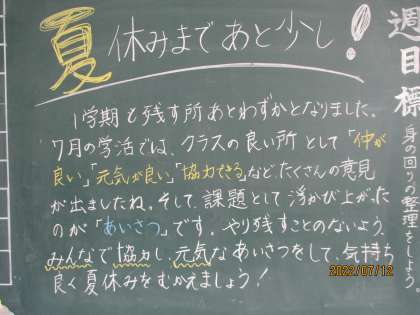 夏休みまであと少し!
1学期も残す所あとわずかとなりました。
7月の学活では、クラスの良い所として「仲が
良い」「元気が良い」「協力できる」など、たくさんの意見
が出ましたね。そして、課題として浮かび上がった
のが「あいさつ」です。やり残すことのないよう、
みんなで協力し、元気なあいさつをして、気持ち
良く夏休みをむかえましょう!
週目標
身の回りの整理をしよう。
2022/07/12